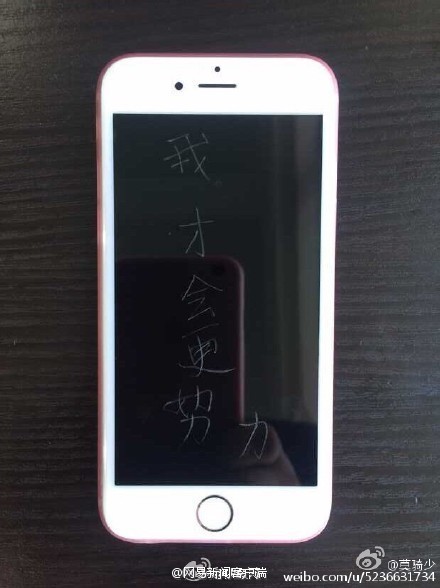 我才会更努力
@网易新闻客户端
@莫骑少
weibo.com/u/5236631734